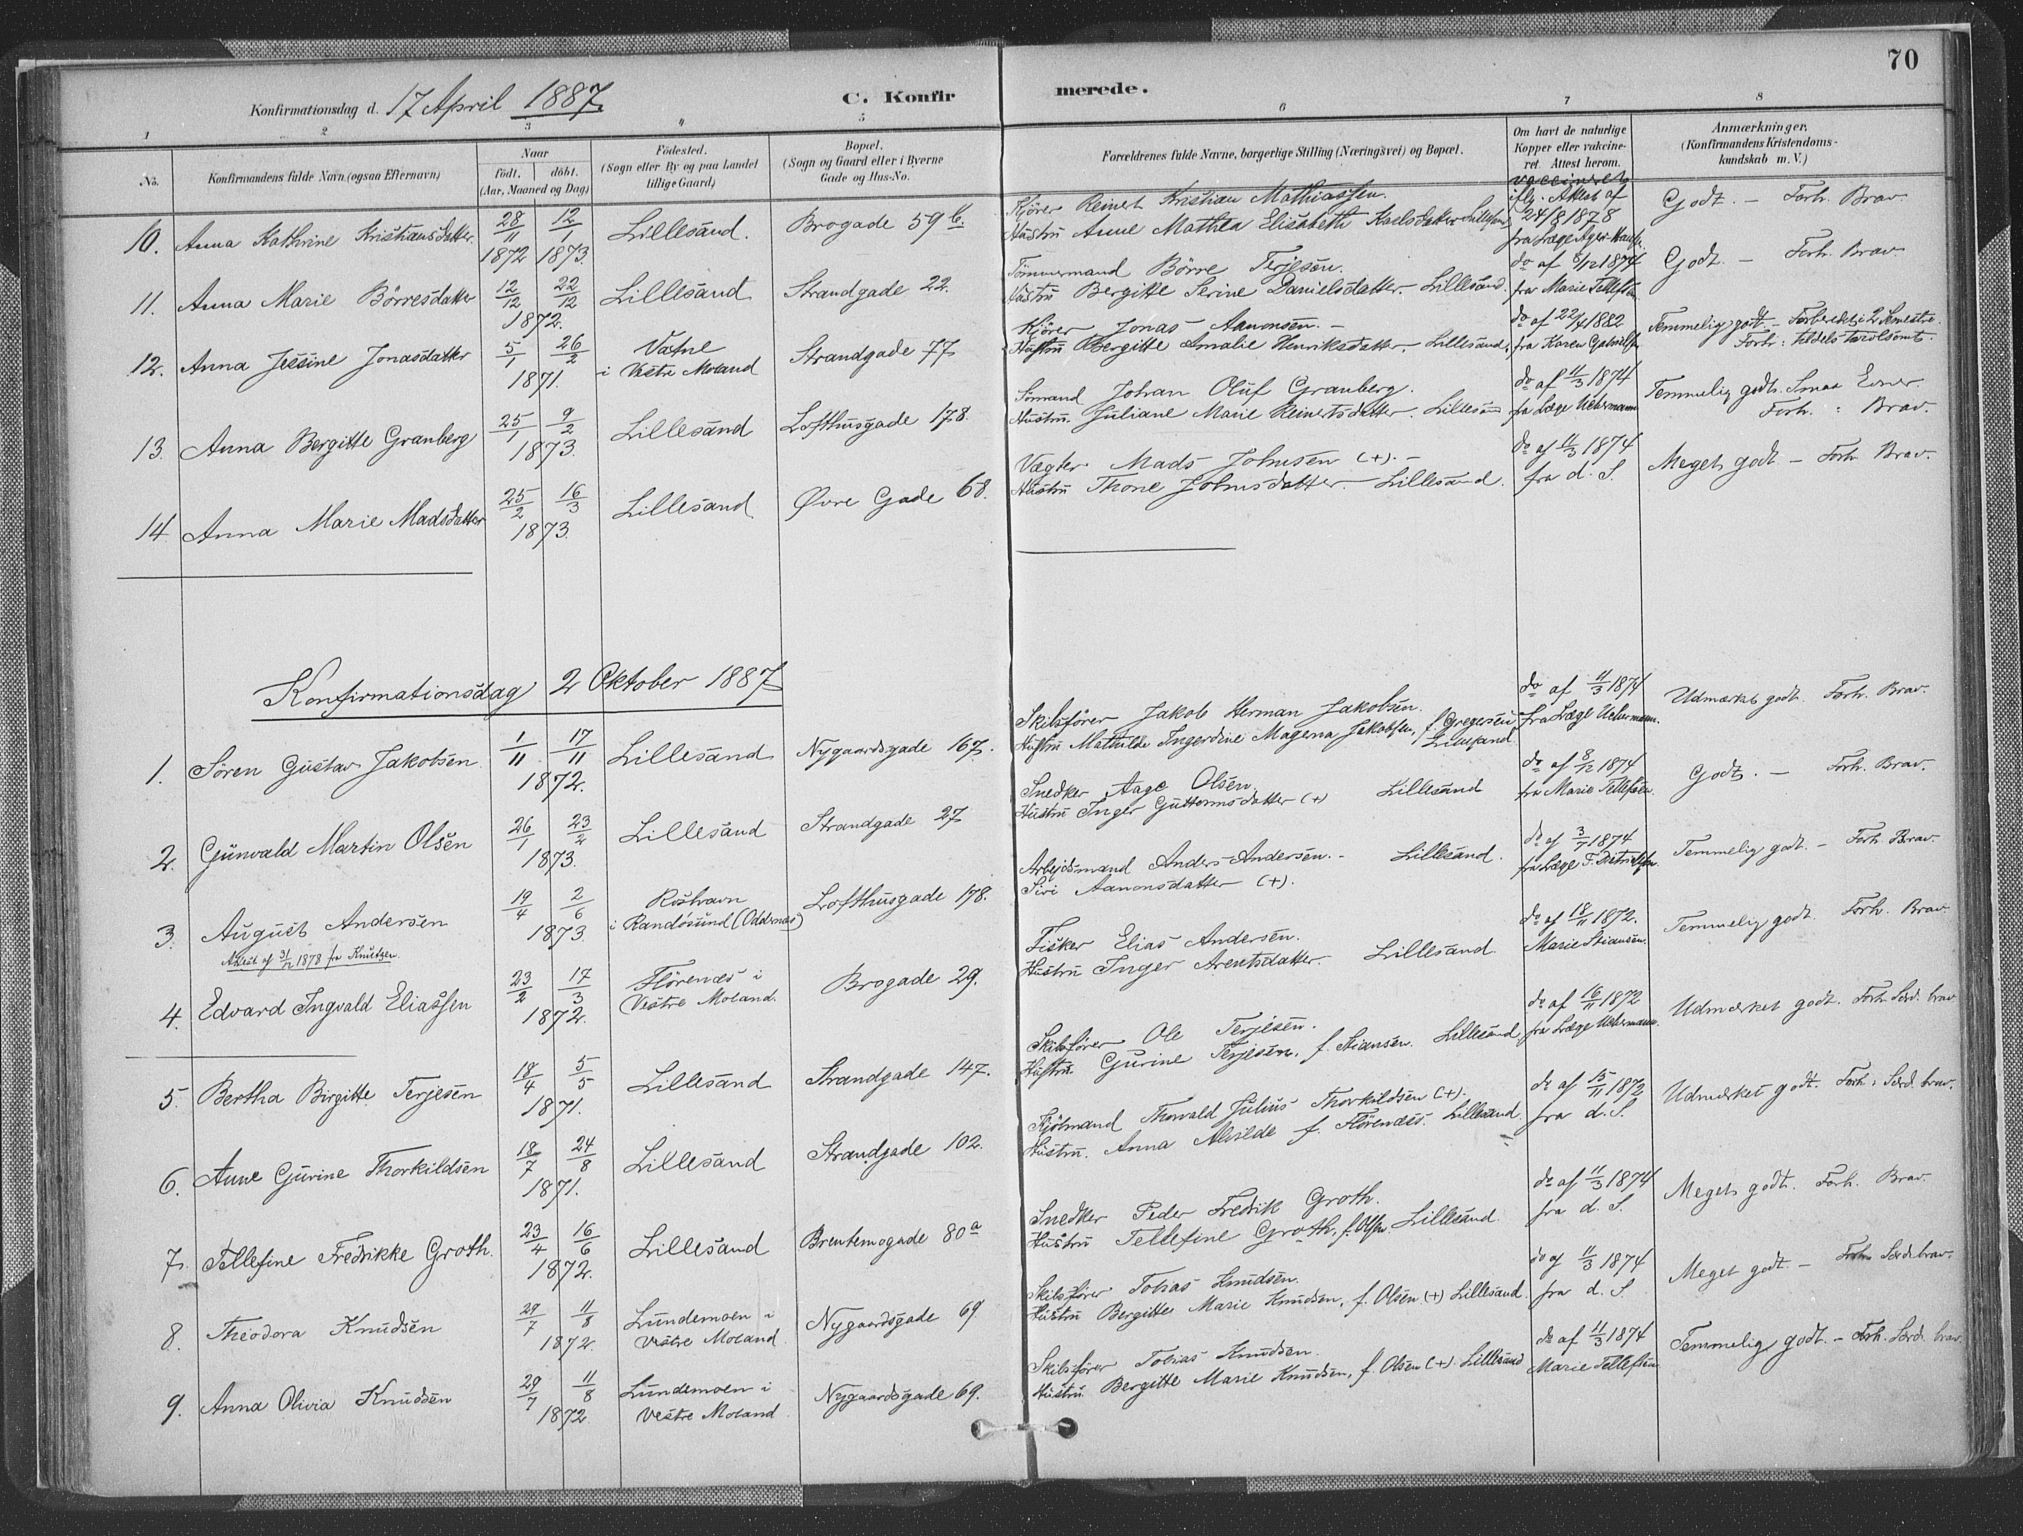 70
Konfirmationsdag d. 17 April 1887. C. Konfir merede.
1 2 3 4 5 6 7 8
No. Konfirmandens fulde Navn (ogsaa Efternavn) Naar født. døbt. (Aar, Maaned og Dag) Fødested. (Sogn eller By og paa Landet tillige Gaard) Bopæl. (Sogn og Gaard eller i Byerne Gade og Hus-No. Forældrenes fulde Navne, borgerlige Stilling (Næringsvei) og Bopæl. Om havt de naturlige Kopper eller vakcineret. Attest herom. Anmærkninger. (Konfirmandens Kristendomskundskab m. V.)
10. Anna Kathrine Kristiansdatter 28/11 1872 12/1 1873. Lillesand. Brogade 59 b.
Kjører Reinert Kristian Mathiassen.
Hustru Anne Mathea Elisabeth Karlsdatter Lillesand
vaccineret iflg. Attest af 24/8 1878 fra Læge
Godt. – Forh. Brav.
11. Anna Marie Börresdatter 12/12 22/12 1872. Lillesand Strandgade 22.
Tömmermand Börre Terjesen.
Hustru Bergitte Serine Danielsdatter. Lillesand.
do af 8/12 1874 fra Marie Tellefsen
Godt. – Forh. Brav.
12. Anna Jessine Jonasdatter 5/1 26/2 1871. i Vestre Moland Strandgade 77
Kjører Jonas Aanonsen. –
Hustru Bergitte Amalie Henriksdatter. Lillesand.
do af 22/4 1882 fra Karen
Temmelig godt – Forberedt i 2 Semestre.
Forh:
13. Anna Bergitte Granberg 25/1 9/2 1873. Lillesand Lofthusgade 178.
Sömand Johan Oluf Granberg.
Hustru. Juliane Marie Reinertsdatter. Lillesand
do af 11/3 1874 fra Læge Uchermann
Temmelig godt. Smaa Evner.
Forh. : Brav.
14. Anna Marie Madsdatter 25/2 16/3 1873. Lillesand Øvre Gade 68.
Vægter Mads Johnsen (+). –
Hustru Thone Johnsdatter – Lillesand.
do af 11/3 1874 fra d. S.
Meget godt – Forh Brav.
Konfirmationsdag 2 Oktober 1887
1. Sören Gustav Jakobsen 1/11 17/11 1872. Lillesand Nygaardsgade 167.
Skibsfører Jakob Herman Jakobsen.
Hustru Mathilde Ingerdine Magena Jakobsen, f. Gregersen Lillesand
do af 11/3 1874 fra Læge Uchermann.
Udmærket godt. Forh. Brav.
2. Gunvald Martin Olsen 26/1 23/2 1873. Lillesand Strandgade 27
Snedker Aage Olsen
Hustru Inger Guttormsdatter (+) Lillesand
do af 8/12 1874 fra Marie Tellefsen.
Godt. – Forh. Brav.
3. August Andersen 19/4 2/6 1873 i Randösund (Oddernæs) Lofthusgade 178.
Attest af 31/12 1878 fra Knutzen.
Arbeidsmand Anders Andersen. – Lillesand.
Siri Aanonsdatter (+).
do af 3/7 1874 fra Læge
Temmelig godt. – Forh. Brav.
4. Edvard Ingvald Eliassen 23/2 17/3 1872. Flörenæs i Vestre Moland. Brogade 29.
Fisker Elias Andersen.
Hustru Inger Arentsdatter. Lillesand
do af 18/11 1872. Marie Stiansen.
Temmelig godt. Forh. Brav.
5. Bertha Birgitte Terjesen 18/4 5/5 1871. Lillesand Strandgade 147.
Skibsfører Ole Terjesen.
Hustru Gurine Terjesen, f. Stiansen. Lillesand
do af 16/11 1872 fra Læge Uchermann.
Udmærket godt. Forh. Særd. brav
6. Anne Gurine Thorkildsen 18/7 24/8 1871. Lillesand Strandgade 102.
Kjöbmand Thorvald Julius Thorkildsen (+).
Hustru. Anna Alvilde f. Flörenæs. Lillesand.
do af 15/11 1872 fra d. S.
Udmærket godt. Forh. Særd. brav.
7. Tellefine Fredrikke Groth. 23/4 16/6 1872. Lillesand Brentemogade 80 a
Snedker Peder Fredrik Groth.
Hustru Tellefine Groth, f. Olsen. Lillesand.
do af 11/3 1874 fra d. S.
Meget godt. Forh. Brav.
8. Theodora Knudsen 29/7 11/8 1872. Lundemoen i Vestre Moland. Nygaardsgade 69.
Skibsfører Tobias Knudsen.
Hustru Bergitte Marie Knudsen, f. Olsen (+) Lillesand.
do af 11/3 1874 fra d. S.
Meget godt. – Forh. Særd. brav.
9. Anna Olivia Knudsen 29/7 11/8 1872. Lundemoen i Vestre Moland. Nygaardsgade 69.
Skibsfører Tobias Knudsen.
Hustru Bergitte Marie Knudsen, f. Olsen (+). Lillesand
do af 11/3 1874 Marie Tellefsen
Temmelig godt. – Forh. Særd. brav